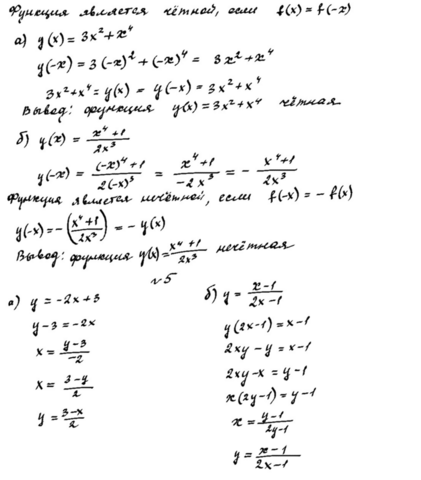 Функция является чётной, если f(x) = f(-x)
а) y(x) = 3x² + x⁴
y(-x) = 3(-x)² + (-x)⁴ = 3x² + x⁴
3x² + x⁴ = y(x) = y(-x) = 3x² + x⁴
Вывод: функция y(x) = 3x² + x⁴ чётная
б) y(x) = (x⁴+1)/(2x³)
y(-x) = ((-x)⁴+1)/(2(-x)³) = (x⁴+1)/(-2x³) = - (x⁴+1)/(2x³)
Функция является нечётной, если f(-x) = - f(x)
y(-x) = -((x⁴+1)/(2x³)) = - y(x)
Вывод: функция y(x) = (x⁴+1)/(2x³) нечётная
№5
а) y = -2x + 3
y - 3 = -2x
x = (y-3)/(-2)
x = (3-y)/2
y = (3-x)/2
б) y = (x-1)/(2x-1)
y(2x-1) = x-1
2xy - y = x-1
2xy - x = y-1
x(2y-1) = y-1
x = (y-1)/(2y-1)
y = (x-1)/(2x-1)